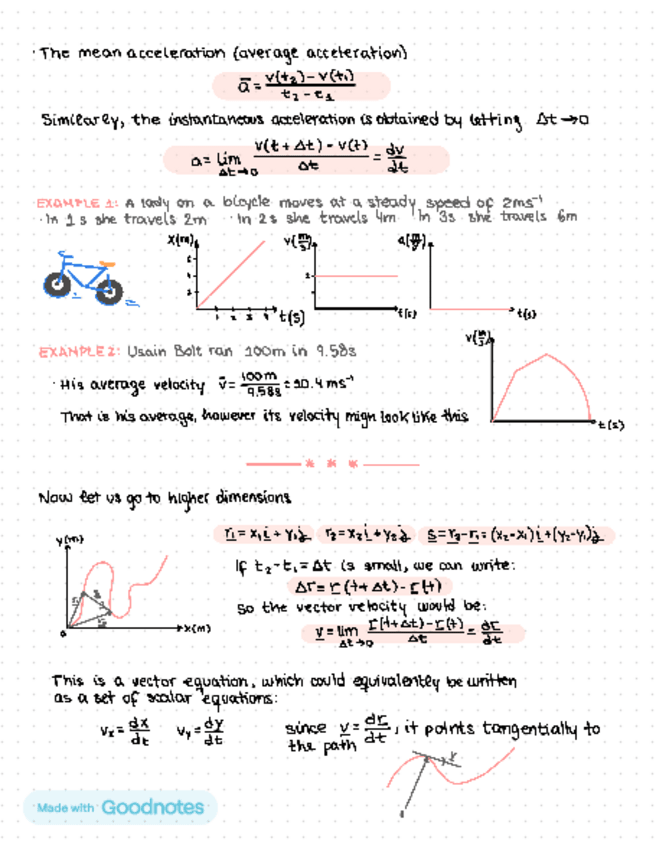 · The mean acceleration (average acceleration)
a̅ = v(t₂) - v(t₁) / t₂ - t₁
Similarly, the instantaneous acceleration is obtained by letting Δt → 0
a = lim Δt→0 v(t + Δt) - v(t) / Δt = dv/dt
EXAMPLE 1: A lady on a bicycle moves at a steady speed of 2ms⁻¹
· In 1s she travels 2m · In 2s she travels 4m · In 3s she travels 6m
x(m) t(s) v(m/s) t(s) a(m/s²) t(s)
EXAMPLE 2: Usain Bolt ran 100m in 9.58s
· His average velocity v̅ = 100m / 9.58s = 10.4 ms⁻¹
v(m/s) t(s)
That is his average, however its velocity migh look like this
Now let us go to higher dimensions
r₁ = x₁i + y₁j r₂ = x₂i + y₂j s = r₂ - r₁ = (x₂ - x₁)i + (y₂ - y₁)j
y(m) x(m)
If t₂ - t₁ = Δt is small, we can write:
Δr = r(t + Δt) - r(t)
so the vector velocity would be:
v = lim Δt→0 r(t + Δt) - r(t) / Δt = dr/dt
This is a vector equation, which could equivalently be written
as a set of scalar equations:
vₓ = dx/dt vᵧ = dy/dt since v = dr/dt, it points tangentially to
the path
v
Made with Goodnotes